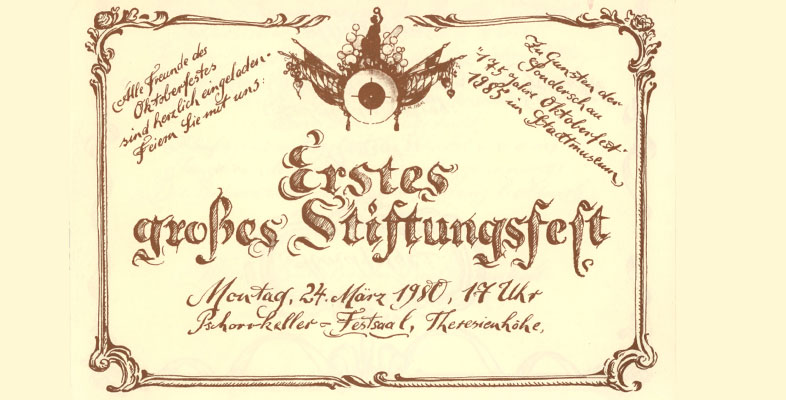 Alle Freunde des
Oktoberfestes
sind herzlich eingeladen.
Feiern Sie mit uns:
Zu Gunsten der
Sonderschau
"175 Jahre Oktoberfest"
1985 im Stadtmuseum
Erstes
großes Stiftungsfest
Montag, 24. März 1980, 17 Uhr
Pschorrkeller - Festsaal, Theresienhöhe,